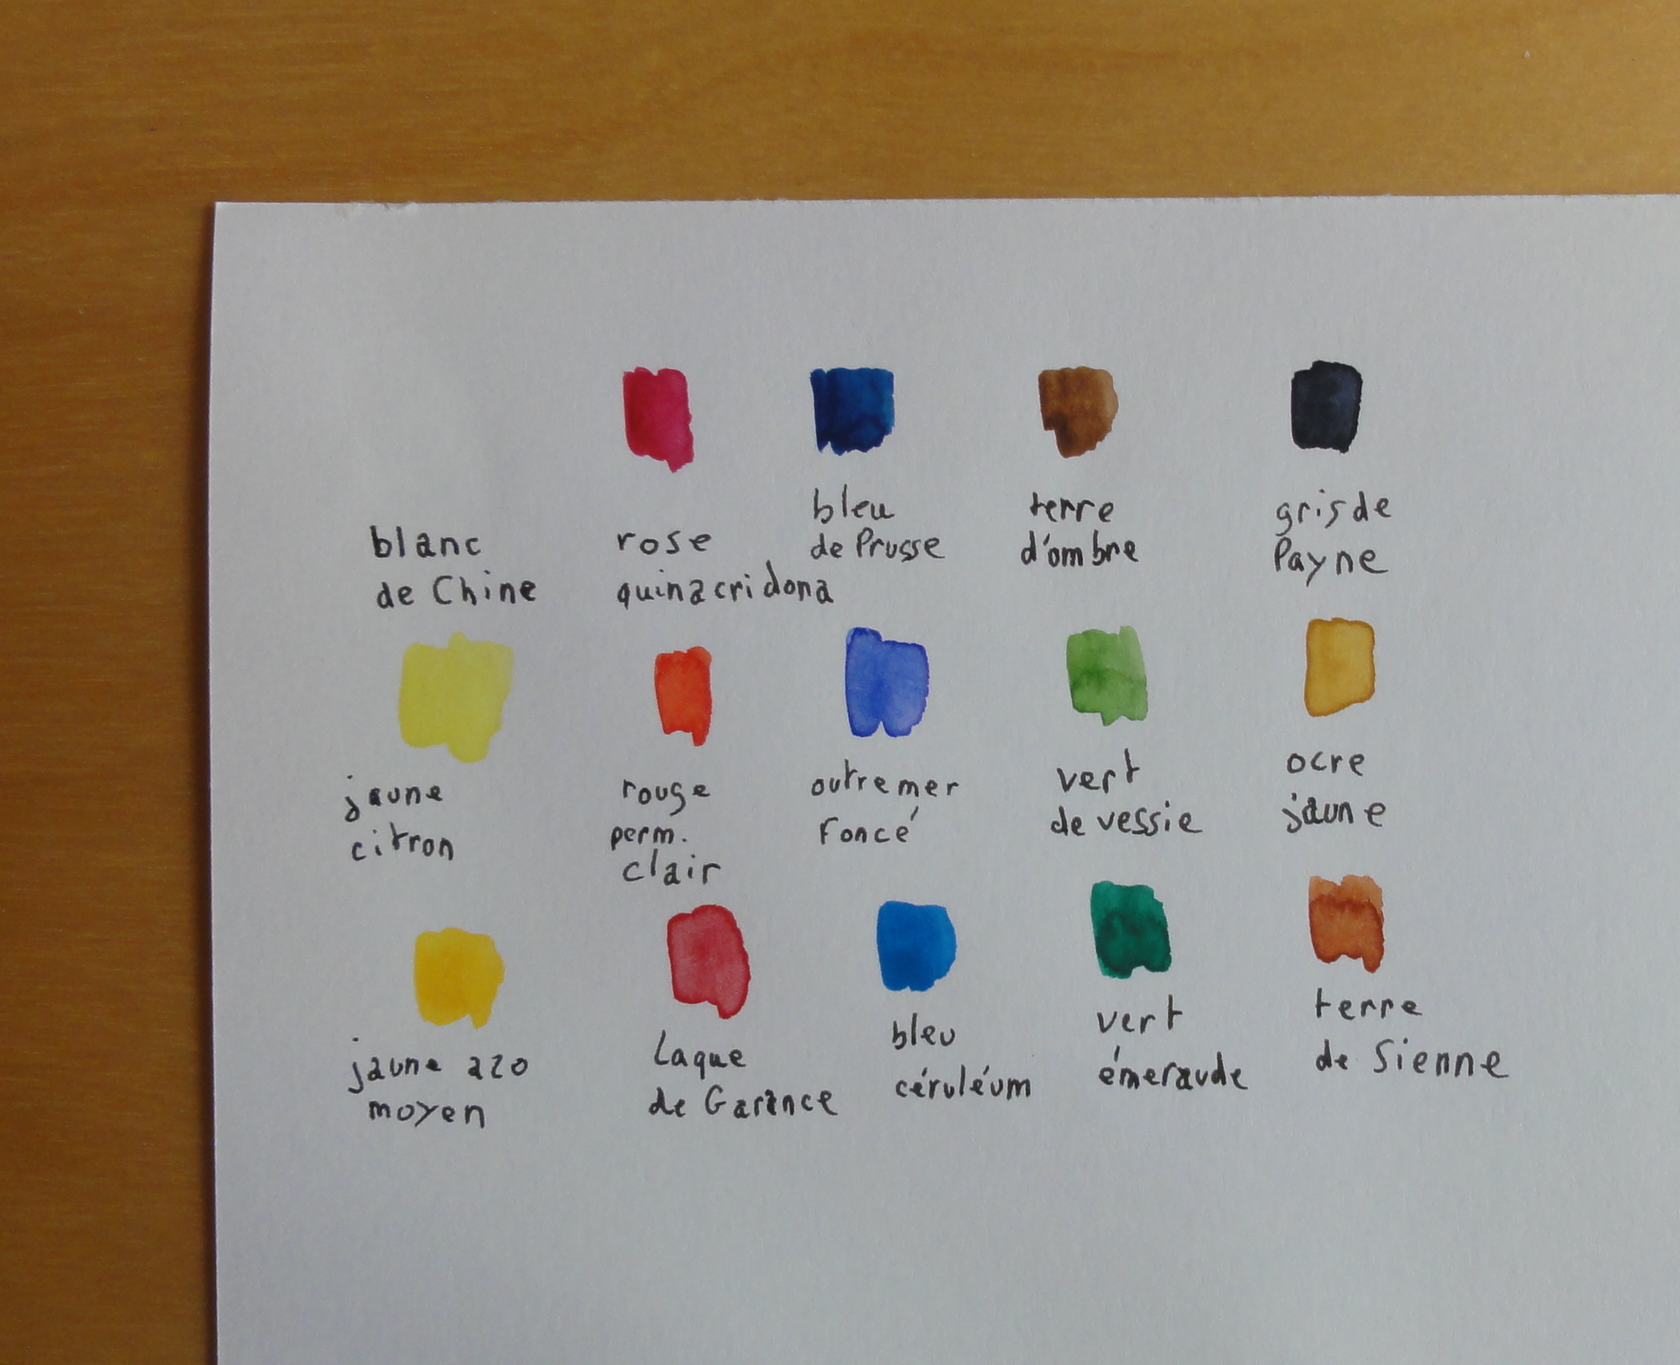 blanc
de Chine
rose
quinacridona
bleu
de Prusse
terre
d'ombre
gris de
Payne
jaune
citron
rouge
perm.
clair
outremer
Foncé
vert
de vessie
ocre
jaune
jaune azo
moyen
Laque
de Garance
bleu
céruléum
vert
émeraude
terre
de Sienne